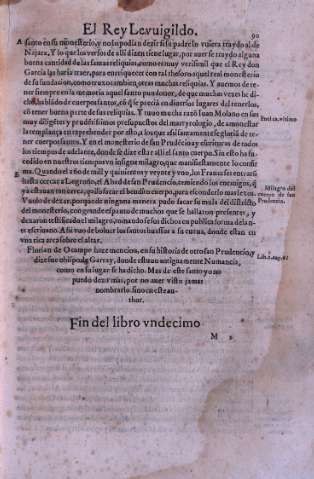 El Rey Leuuigildo.
90
A santo en su monesterio, y no se podia dezir si su padre lo vuiera traydo al de
Najara, Y lo que los versos de alli dizen tiene lugar, por auer se traydo alguna
buena cantidad de las santas reliquias, como es muy verisimil que el Rey don
Garcia las haria traer, para enriquecer con tal thesoro aquel real monesterio
de su fundacion, como truxo tambien otras muchas reliquias. Y auemos de te-
ner siempre en la memoria aquel santo punto, de que muchas vezes he di-
cho, hablando de cuerpos santos, que se precia en diuersos lugares del tenerlos,
cō tener buena parte de sus reliquias. Y tuuo mucha razō Iuan Molano en sus
muy diligentes y prouechosos presupuestos del martyrologio, de amonestar
la templança en reprehender por esto, a los que assi santamente se gloriā de te-
ner cuerpos santos. Y en el monesterio de san Prudencio ay escrituras de todos
los tiempos de adelante, donde se dize estar alli el santo cuerpo. Sin esto ha su-
cedido en nuestros tiempos vn insigne milagro, que manifiestamente lo confir
ma. Quando el año de mill y quinientos y veynte y vno, los Franceses entrarō
B hasta cercar a Logroño, el Abad de san Prudencio, temiendo los enemigos,
y a estauan tan cerca, puso el santo bulto en vna mula, para esconderlo mas le-
Vuolo de dexar, porque de ninguna manera pudo sacar su mula del districto
del monesterio, con grande espanto de muchos que se hallaron presentes, y
de tan notable y insigne milagro, tomandose los dichos en publica forma delan-
te escriuano. Assi vuo de boluer los santos huessos a su cueua, donde estan en
vna rica arca sobre el altar.
Florian de Ocampo haze mencion, en su historia de otro san Prudencio, y
dize fue obispo de Garray, donde estuuo antiguamente Numancia,
como en su lugar se ha dicho. Mas de este santo yo no
puedo dezir mas, por no auer visto jamas
nombrarlo sino en este au-
thor.
Milagro del
cuerpo de san
Prudencio.
Fin del libro vndecimo
M 2